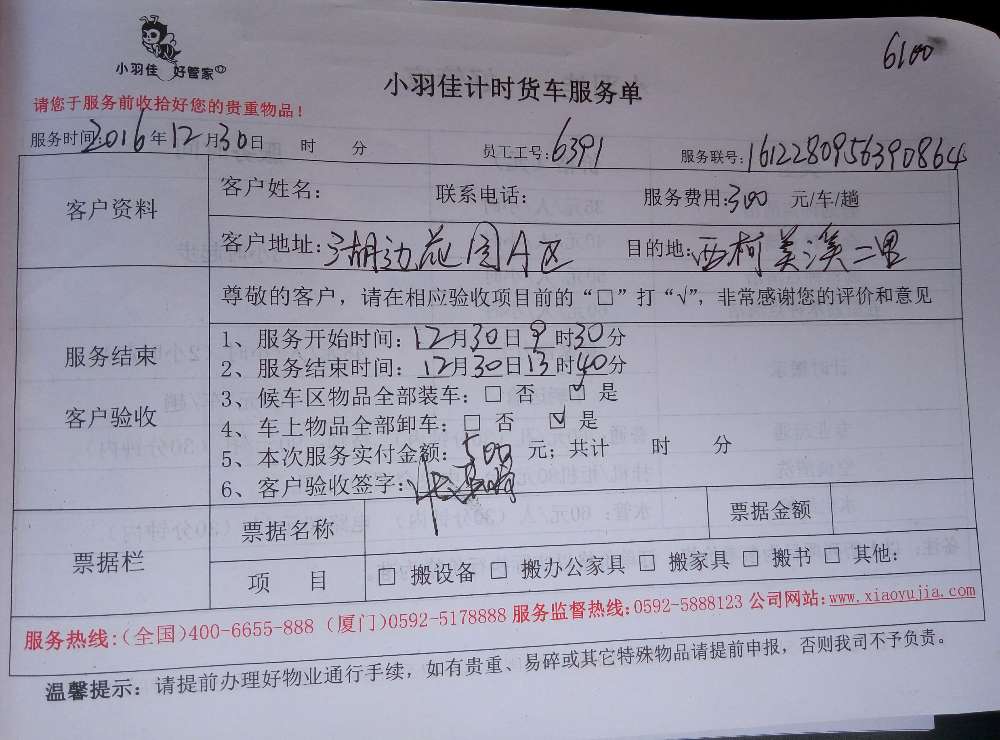 6100
小羽佳 好管家
小羽佳计时货车服务单
请您于服务前收拾好您的贵重物品！
服务时间：2016年12月30日 时 分 员工工号：6391 服务联号：1612280956390864
客户资料
客户姓名： 联系电话： 服务费用：300 元/车/趟
客户地址：湖边花园A区 目的地：西柯美溪二里
尊敬的客户，请在相应验收项目前的“□”打“√”，非常感谢您的评价和意见
服务结束
客户验收
1、服务开始时间：12月30日9时30分
2、服务结束时间：12月30日13时40分
3、候车区物品全部装车：□ 否 ☑ 是
4、车上物品全部卸车：□ 否 ☑ 是
5、本次服务实付金额：500 元；共计 时 分
6、客户验收签字：
票据栏
票据名称 票据金额
项 目 □ 搬设备 □ 搬办公家具 □ 搬家具 □ 搬书 □ 其他：
服务热线：(全国)400-6655-888 (厦门)0592-5178888 服务监督热线：0592-5888123 公司网站：www.xiaoyujia.com
温馨提示：请提前办理好物业通行手续，如有贵重、易碎或其它特殊物品请提前申报，否则我司不予负责。